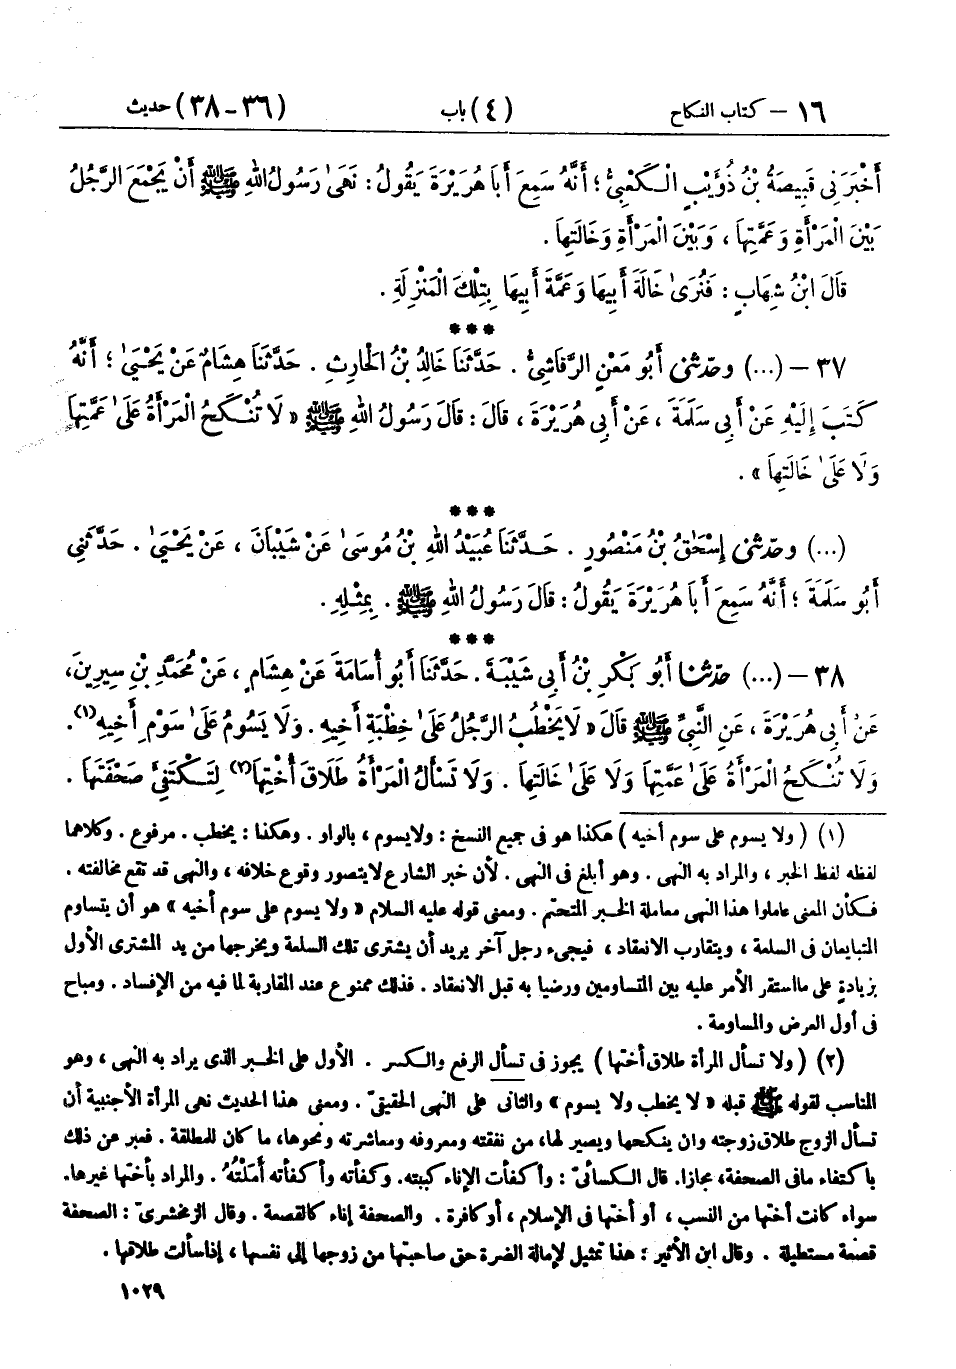 ١٦ – كتاب النكاح (٤) باب (٣٦-٣٨) حديث
أَخْبَرَنِي قَبِيصَةُ بْنُ ذُؤَيْبٍ الْكَعْبِيُّ؛ أَنَّهُ سَمِعَ أَبَا هُرَيْرَةَ يَقُولُ: نَهَىٰ رَسُولُ اللهِ ﷺ أَنْ يَجْمَعَ الرَّجُلُ
بَيْنَ الْمَرْأَةِ وَعَمَّتِهَا، وَبَيْنَ الْمَرْأَةِ وَخَالَتِهَا.
قَالَ ابْنُ شِهَابٍ: فَنُرَىٰ خَالَةَ أَبِيهَا وَعَمَّةَ أَبِيهَا بِتِلْكَ الْمَنْزِلَةِ.
***
٣٧ – (...) وحدّثنى أَبُو مَعْنٍ الرَّقَاشِيُّ. حَدَّثَنَا خَالِدُ بْنُ الْحَارِثِ. حَدَّثَنَا هِشَامٌ عَنْ يَحْيَىٰ؛ أَنَّهُ
كَتَبَ إِلَيْهِ عَنْ أَبِي سَلَمَةَ، عَنْ أَبِي هُرَيْرَةَ، قَالَ: قَالَ رَسُولُ اللهِ ﷺ «لَا تُنْكَحُ الْمَرْأَةُ عَلَىٰ عَمَّتِهَا
وَلَا عَلَىٰ خَالَتِهَا».
***
(...) وحدّثنى إِسْحَٰقُ بْنُ مَنْصُورٍ. حَدَّثَنَا عُبَيْدُ اللهِ بْنُ مُوسَىٰ عَنْ شَيْبَانَ، عَنْ يَحْيَىٰ. حَدَّثَنِي
أَبُو سَلَمَةَ؛ أَنَّهُ سَمِعَ أَبَا هُرَيْرَةَ يَقُولُ: قَالَ رَسُولُ اللهِ ﷺ. بِمِثْلِهِ.
***
٣٨ – (...) حدّثنا أَبُو بَكْرِ بْنُ أَبِي شَيْبَةَ. حَدَّثَنَا أَبُو أُسَامَةَ عَنْ هِشَامٍ، عَنْ مُحَمَّدِ بْنِ سِيرِينَ،
عَنْ أَبِي هُرَيْرَةَ، عَنِ النَّبِيِّ ﷺ قَالَ «لَا يَخْطُبُ الرَّجُلُ عَلَىٰ خِطْبَةِ أَخِيهِ. وَلَا يَسُومُ عَلَىٰ سَوْمِ أَخِيهِ(١).
وَلَا تُنْكَحُ الْمَرْأَةُ عَلَىٰ عَمَّتِهَا وَلَا عَلَىٰ خَالَتِهَا. وَلَا تَسْأَلُ الْمَرْأَةُ طَلَاقَ أُخْتِهَا(٢) لِتَكْتَفِئَ صَحْفَتَهَا.
(١) (ولا يسوم على سوم أخيه) هكذا هو فى جميع النسخ: ولايسوم، بالواو. وهكذا: يخطب. مرفوع. وكلاهما
لفظه لفظ الخبر، والمراد به النهى. وهو أبلغ فى النهى. لأن خبر الشارع لايتصور وقوع خلافه، والنهى قد تقع مخالفته.
فكأن المعنى عاملوا هذا النهى معاملة الخبر المتحتم. ومعنى قوله عليه السلام «ولا يسوم على سوم أخيه» هو أن يتساوم
المتبايعان فى السلعة، ويتقارب الانعقاد، فيجىء رجل آخر يريد أن يشترى تلك السلعة ويخرجها من يد المشترى الأول
بزيادةٍ على مااستقر الأمر عليه بين المتساومين ورضيا به قبل الانعقاد. فذلك ممنوع عند المقاربة لما فيه من الإفساد. ومباح
فى أول العرض والمساومة.
(٢) (ولا تسأل المرأة طلاق أختها) يجوز فى تسأل الرفع والكسر. الأول على الخبر الذى يراد به النهى، وهو
المناسب لقوله ﷺ قبله «لا يخطب ولا يسوم» والثانى على النهى الحقيقىّ. ومعنى هذا الحديث نهى المرأة الأجنبية أن
تسأل الزوج طلاق زوجته وان ينكحها ويصير لها، من نفقته ومعروفه ومعاشرته ونحوها، ما كان للمطلقة. فعبر عن ذلك
باكتفاء مافى الصحفة، مجازا. قال الكسائىّ: وأكفأت الإناء كببته. وكفأته وأكفأته أَمَلْتُهُ. والمراد بأختها غيرها.
سواء كانت أختها من النسب، أو أختها فى الإسلام، أو كافرة. والصحفة إناء كالقصعة. وقال الزمخشرىّ: الصحفة
قصعة مستطيلة. وقال ابن الأثير: هذا تمثيل لإمالة الضرة حق صاحبتها من زوجها إلى نفسها، إذاسألت طلاقها.
١٠٢٩